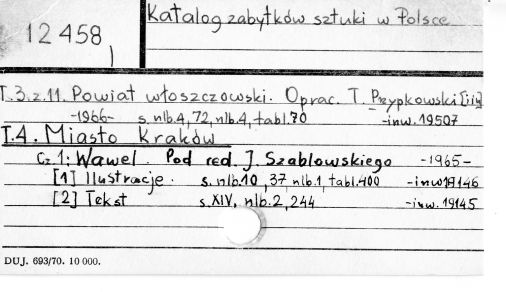 Katalog zabytków sztuki w Polsce
12 458
T.3.z.11. Powiat włoszczowski. Oprac. T. Przypkowski [i in]
-1966- s. nlb.4, 72, nlb.4, tabl.70 -inw. 19507
T.4. Miasto Kraków
Cz.1: Wawel. Pod red. J. Szablowskiego -1965-
[1] Ilustracje. s. nlb.10, 37, nlb.1, tabl.400 -inw 19146
[2] Tekst s. XIV, nlb.2, 244 -inw. 19145
DUJ. 693/70. 10 000.